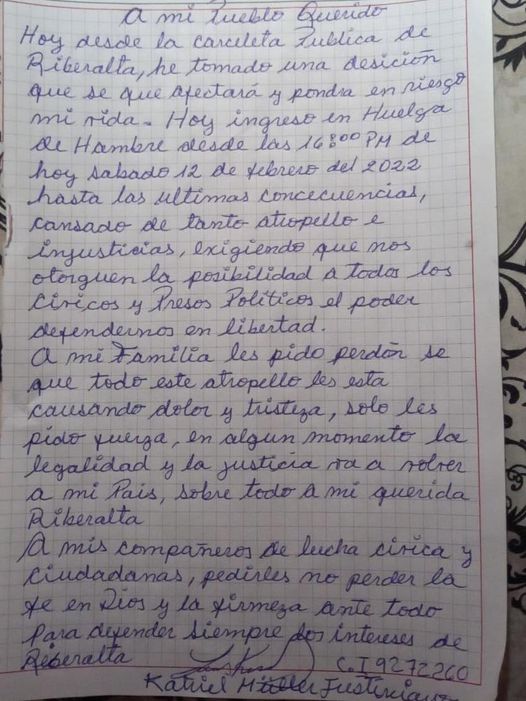 A mi Pueblo Querido
Hoy desde la carceleta Publica de
Riberalta, he tomado una desición
que se que afectará y pondra en riesgo
mi vida. Hoy ingreso en Huelga
de Hambre desde las 16:00 PM de
hoy sabado 12 de febrero del 2022
hasta las ultimas concecuencias,
cansado de tanto atropello e
injusticias, exigiendo que nos
otorguen la posibilidad a todos los
Civicos y Presos Politicos el poder
defendernos en libertad.
A mi Familia les pido perdón se
que todo este atropello les esta
causando dolor y tristeza, solo les
pido fuerza, en algun momento la
legalidad y la justicia va a volver
a mi Pais, sobre todo A mi querida
Riberalta
A mis compañeros de lucha civica y
ciudadanas, pedirles no perder la
fe en Dios y la firmeza ante todo
para defender siempre los intereses de
Riberalta
Katriel Müller Justiniano
C.I 9272260